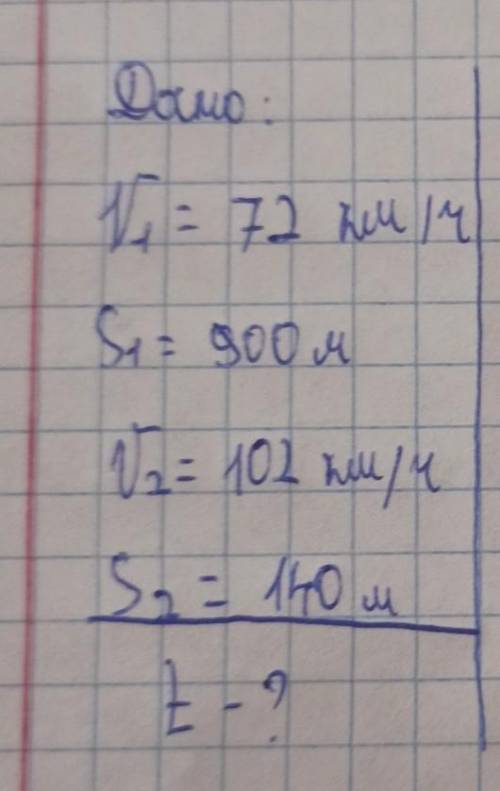 Дано:
V₁ = 72 км/ч
S₁ = 900 м
V₂ = 102 км/ч
S₂ = 140 м
t - ?